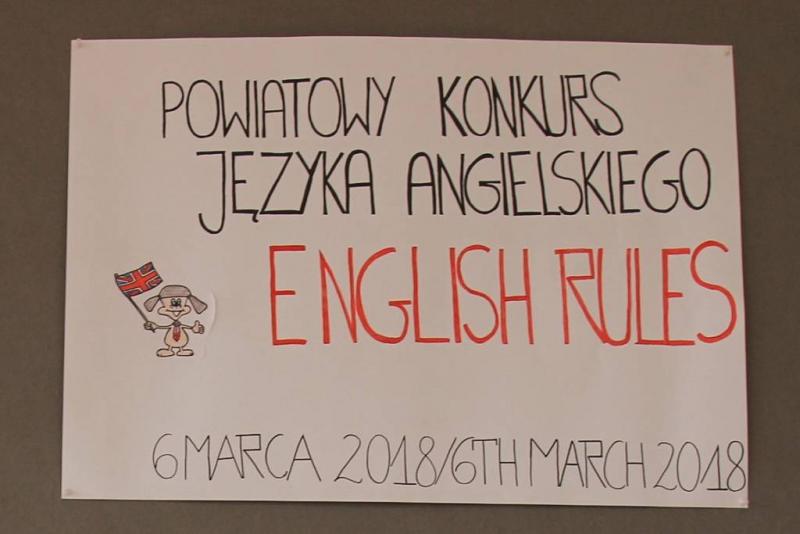 POWIATOWY KONKURS
JĘZYKA ANGIELSKIEGO
ENGLISH RULES
6 MARCA 2018/6TH MARCH 2018